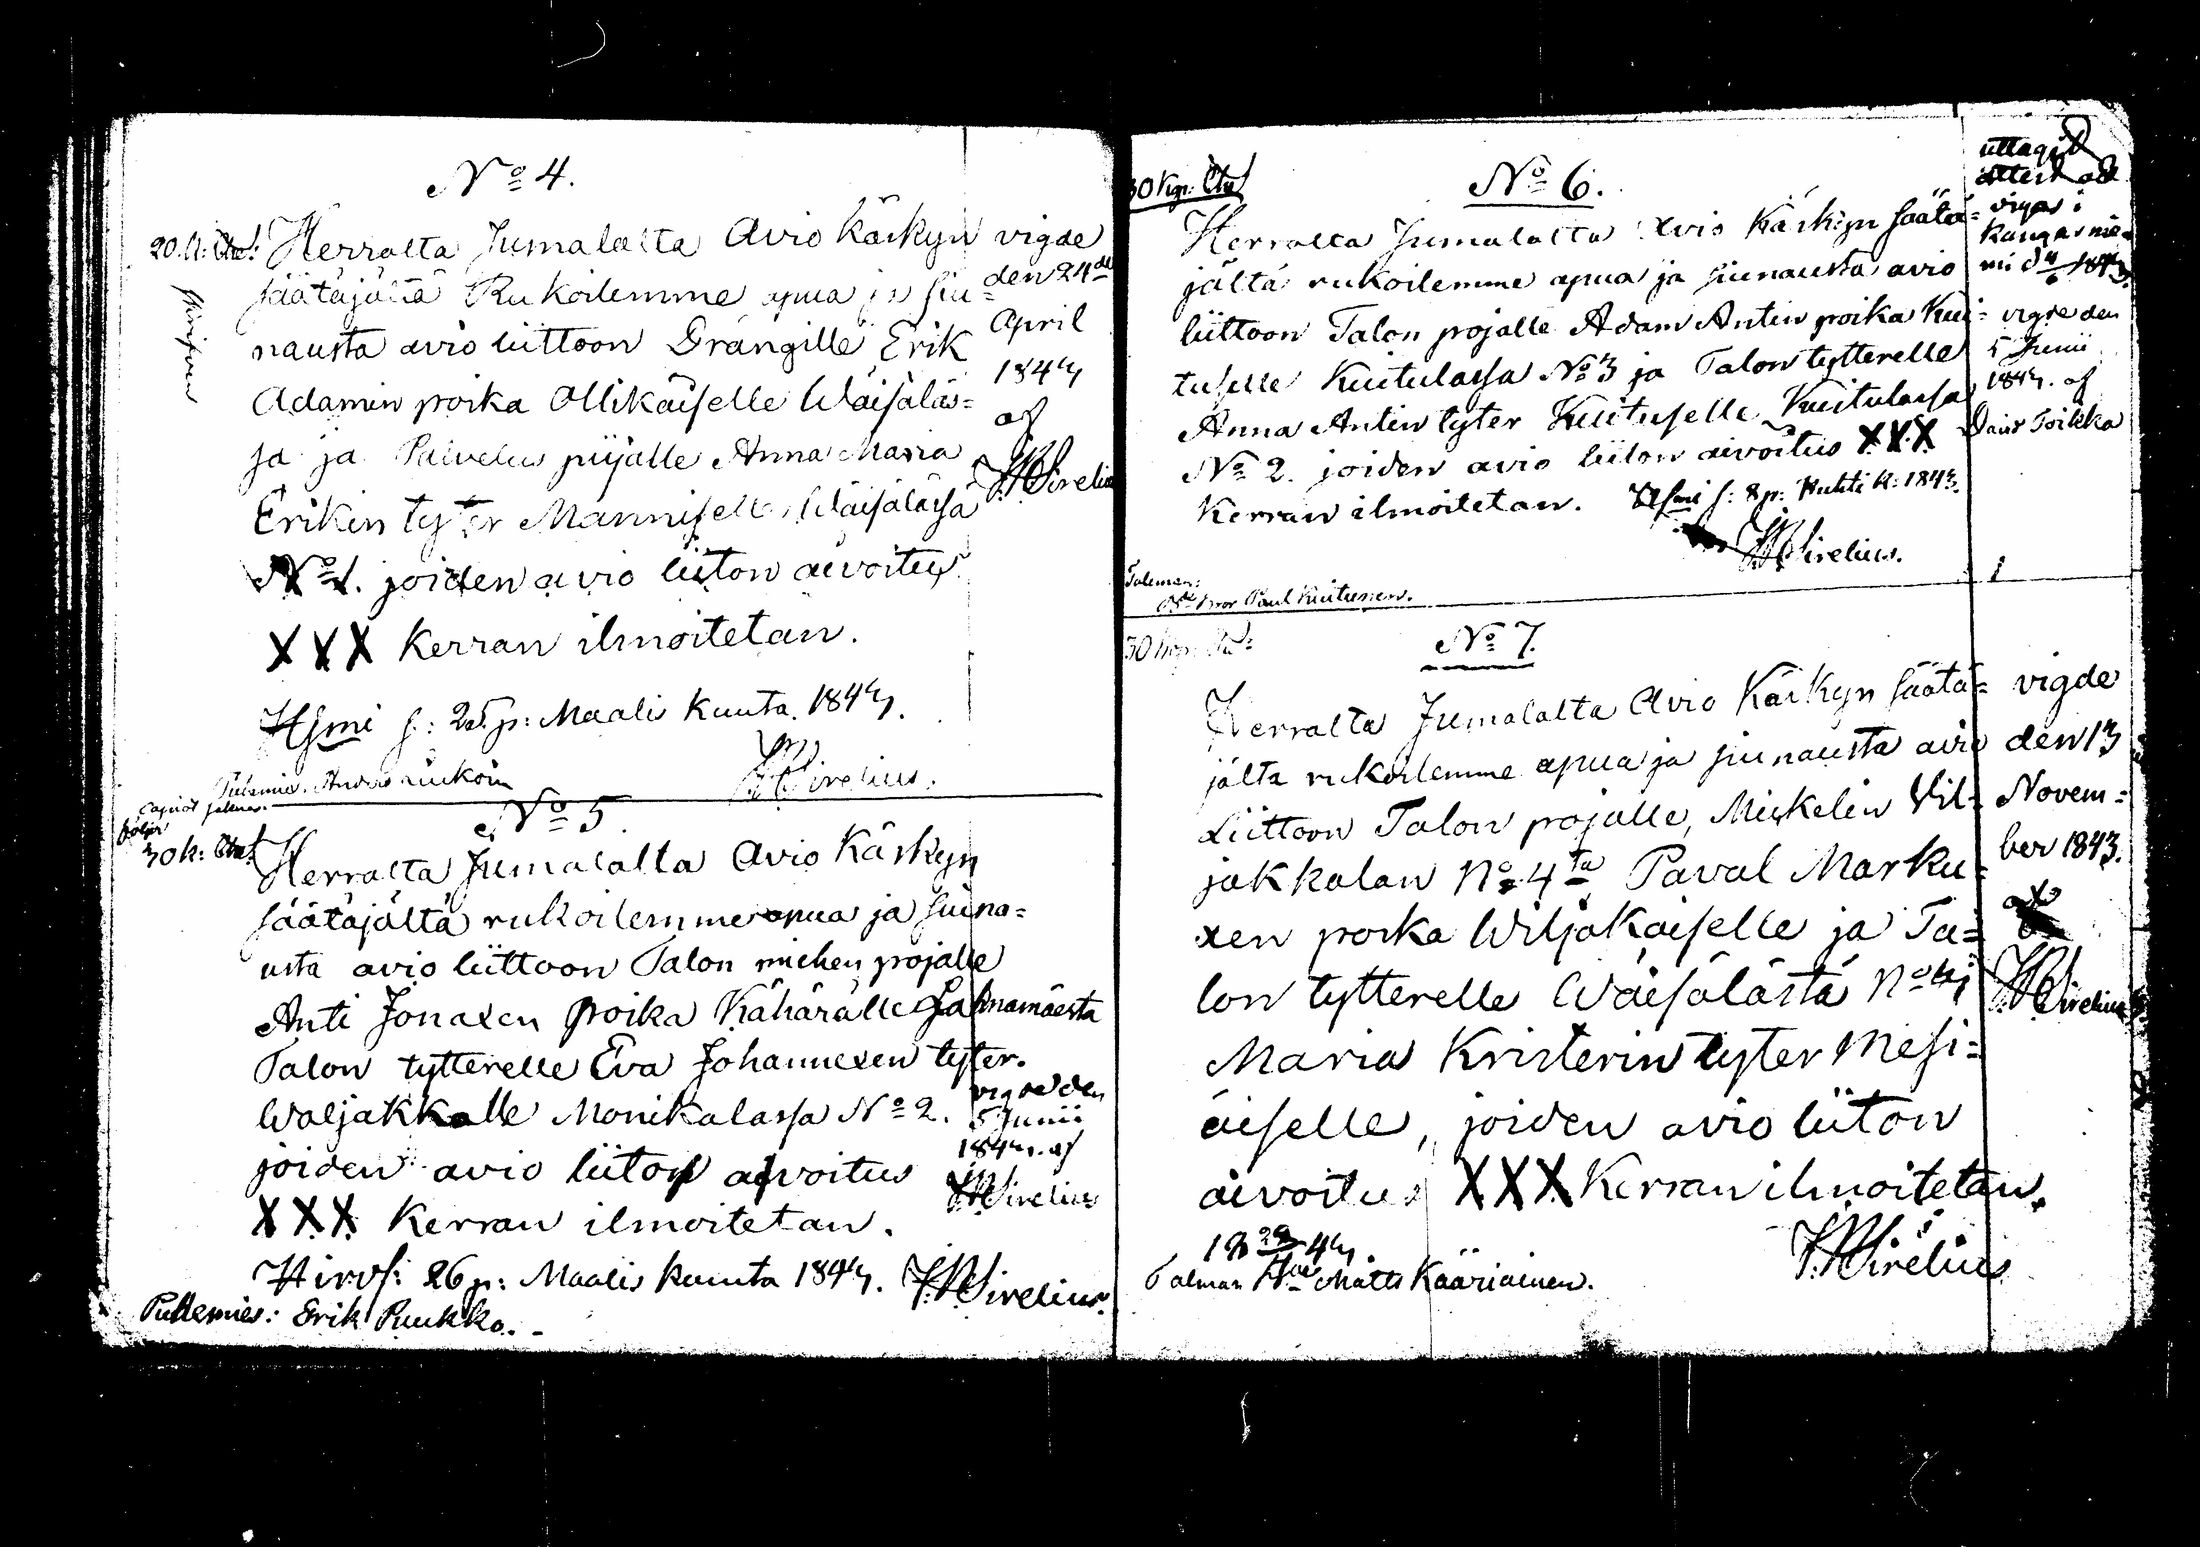 No 4.
20. k:
Herralta Jumalalta Avio Käskyn
säätäjältä Rukoilemme apua ja siu=
nausta avio liittoon Drängille Erik
Adamin poika Ollikaiselle Wäisäläs=
sä ja Palvelus piijalle Anna Maria
Erikin tyter Manniselle Wäisälässä
No 1. joiden avio liiton aivoitus
XXX Kerran ilmoitetan.
Hsmi s: 25 p: Maalis Kuuta. 1843.
Sirelius.
vigde
den 24de
April
1843
af
Sirelius
Puhemies. Anders
No 5
30 k:
Herralta Jumalalta Avio Käskyn
säätäjältä rukoilemme apua ja siuna=
usta avio liittoon Talon miehen pojalle
Anti Jonaxen poika Kähärälle Lahnamäestä
Talon tytterelle Eva Johannexen tyter.
Waljakkalle Monikalassa No 2.
joiden avio liiton aivoitus
XXX Kerran ilmoitetan.
Hirvs: 26 p: Maalis kuuta 1843. Sirelius.
vigde den
5 Junii
1843. af
Sirelius
Puhemies: Erik Puukko.
30 Kop:
No 6.
Herralta Jumalalta Avio Käskyn säätä=
jältä rukoilemme apua ja siunausta avio
liittoon Talon pojalle Adam Antin poika Kui=
tuselle Kuitulassa No 3 ja Talon tytterelle
Anna Antin tyter Kuituselle Kuitulassa
No 2. joiden avio liiton aivoitus XXX
Kerran ilmoitetan. Hsmi s: 8 p: Huhti k: 1843.
Sirelius.
uttagit
attest att
vigas i
Kangasnie=
mi d 4/6 1843.
vigde den
5 Junii
1843. af
Toikka
Talman:
Paul Kuitunen.
30 kop:
No 7.
Herralta Jumalalta Avio Käskyn säätä=
jältä rukoilemme apua ja siunausta avio
Liittoon Talon pojalle, Mickelin Vil=
jakkalan No 4ta Paval Marku=
xen poika Wiljakaiselle ja Ta=
lon tytterelle Wäisälästä No 4
Maria Kristerin tyter Mesi=
äiselle, joiden avio liiton
aivoitus XXX Kerran ilmoitetan.
Sirelius
vigde
den 13
Novem=
ber 1843.
af
Sirelius
Talman Matts Kääriainen.